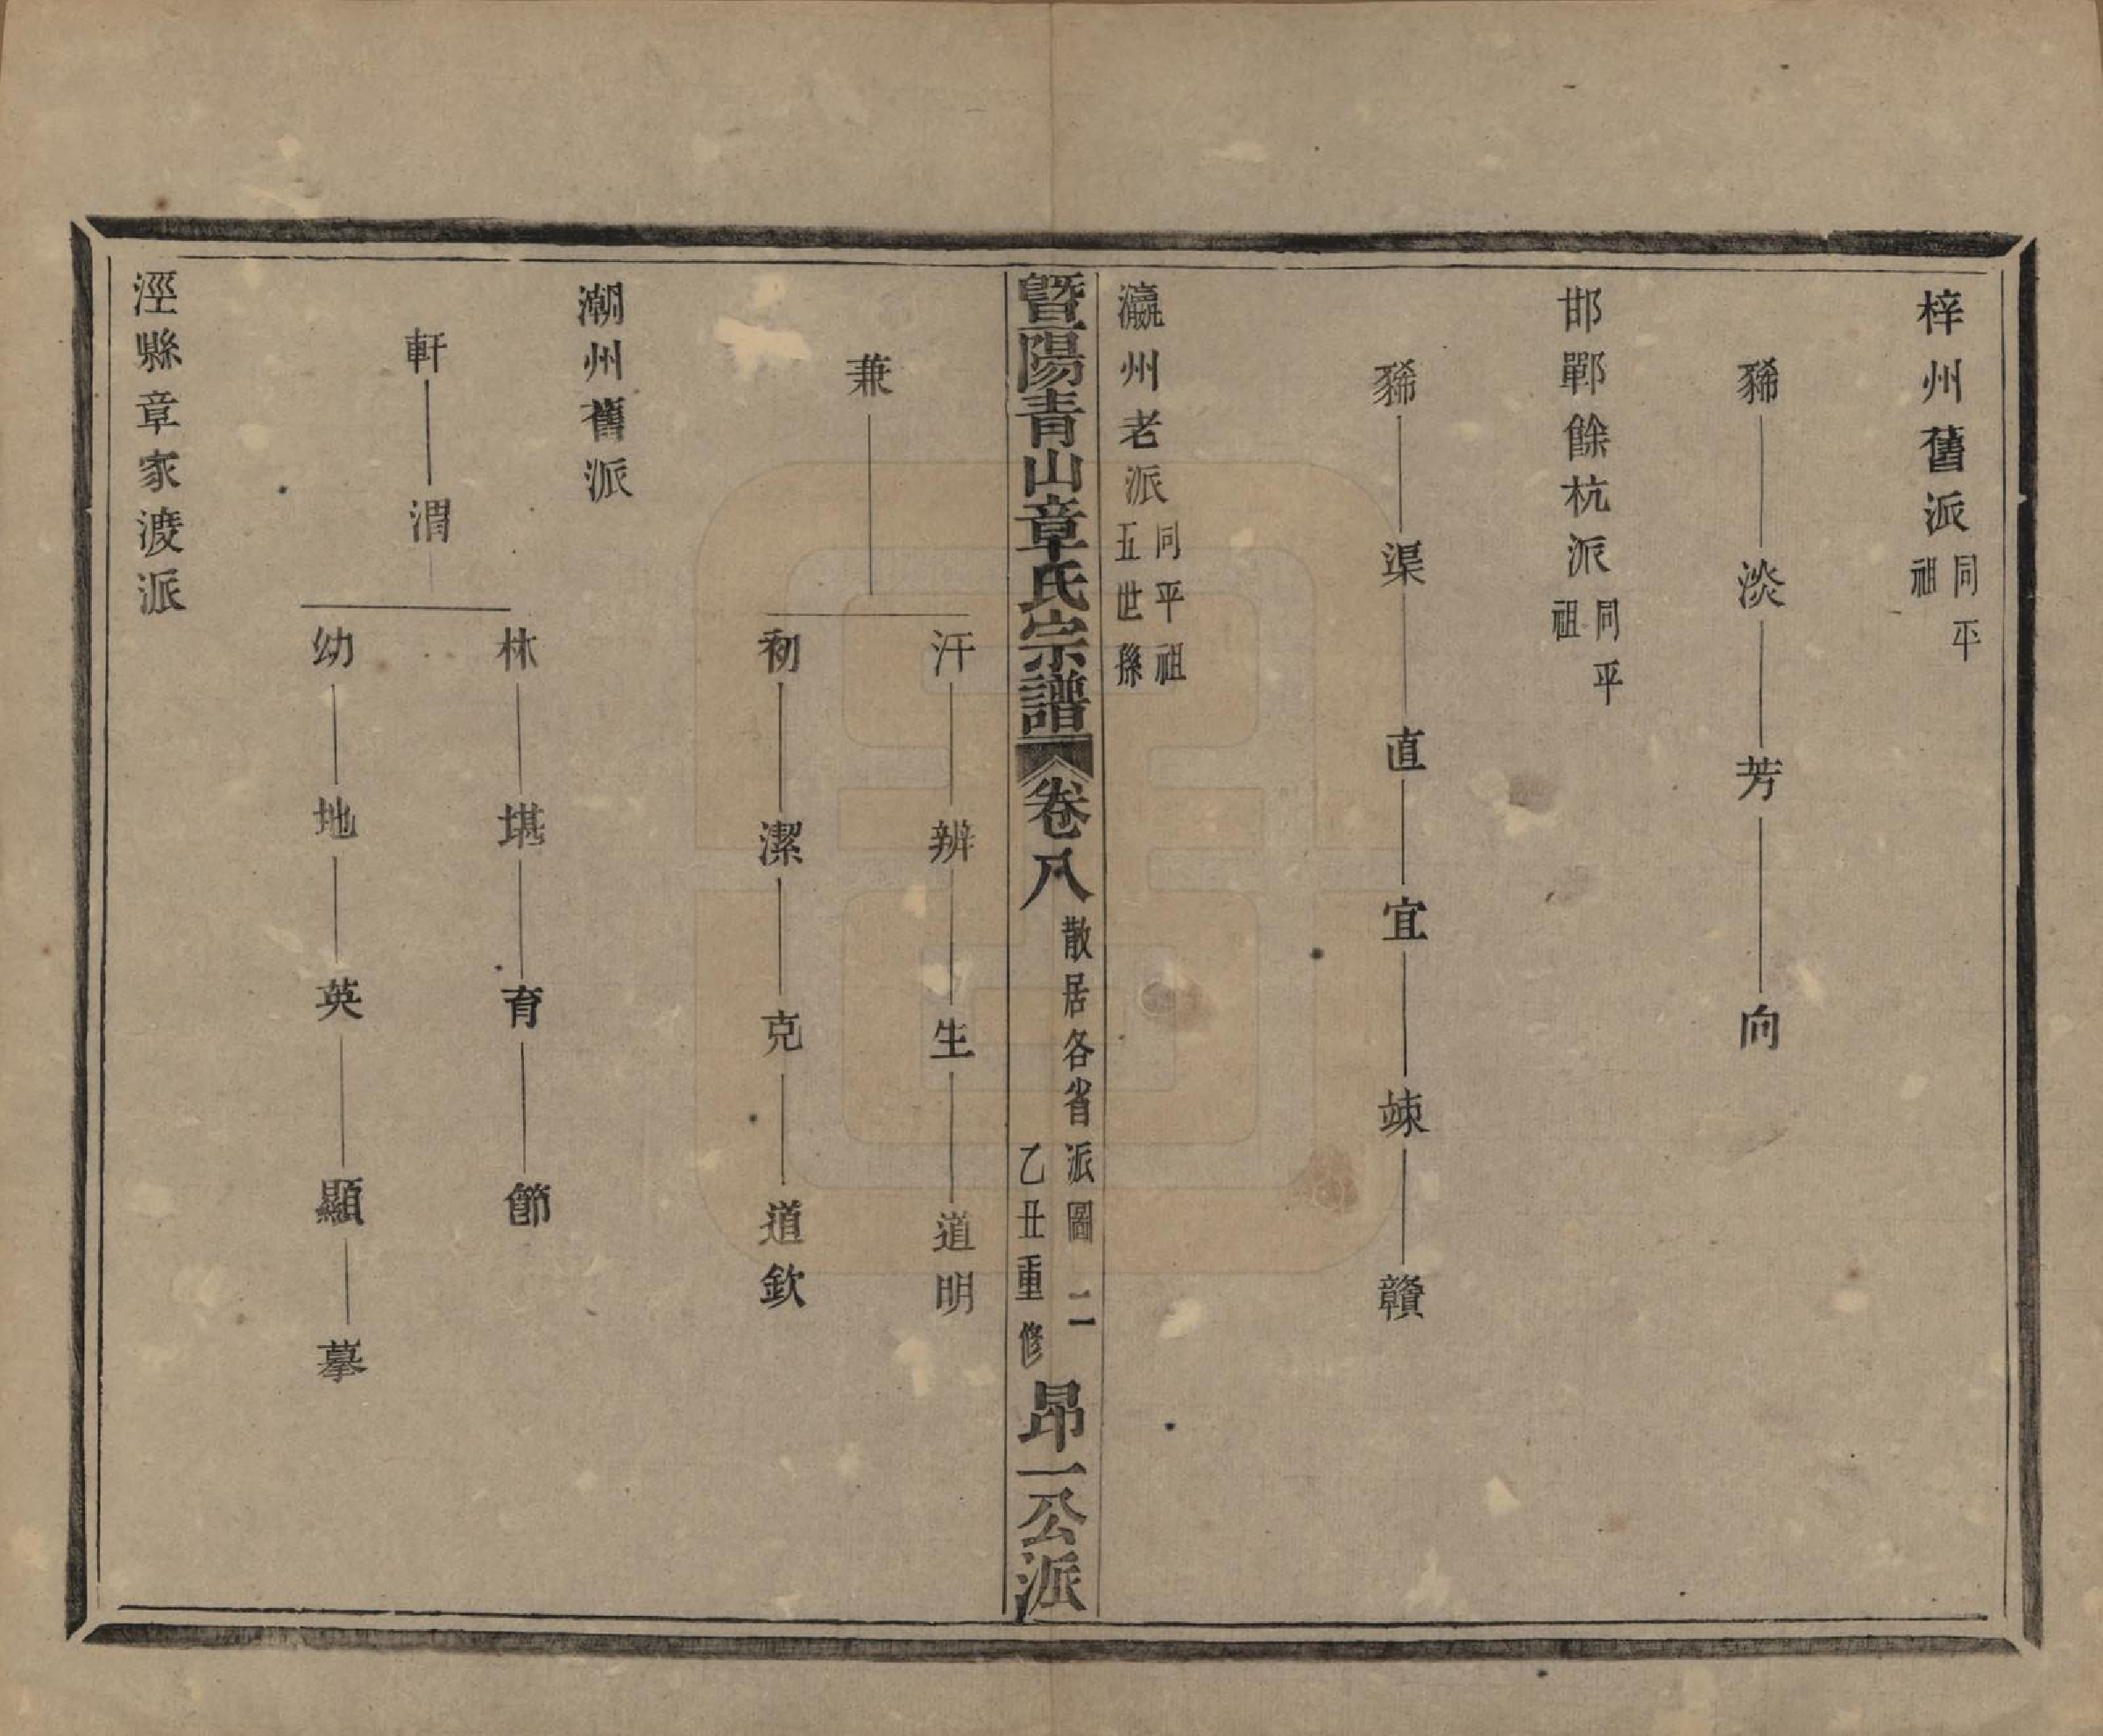 梓州舊派同平祖
豨 淡 芳 向
邯鄲餘杭派同平祖
豨 渠 直 宜 竦 贛
瀛州老派同平祖五世孫
暨陽青山章氏宗譜 卷八 散居各省派圖 二 乙丑重修 昂一公派
兼
汗 辨 生 道明
初 潔 克 道欽
潮州舊派
軒 渭
林 堪 育 節
幼 地 英 顯 摹
涇縣章家渡派